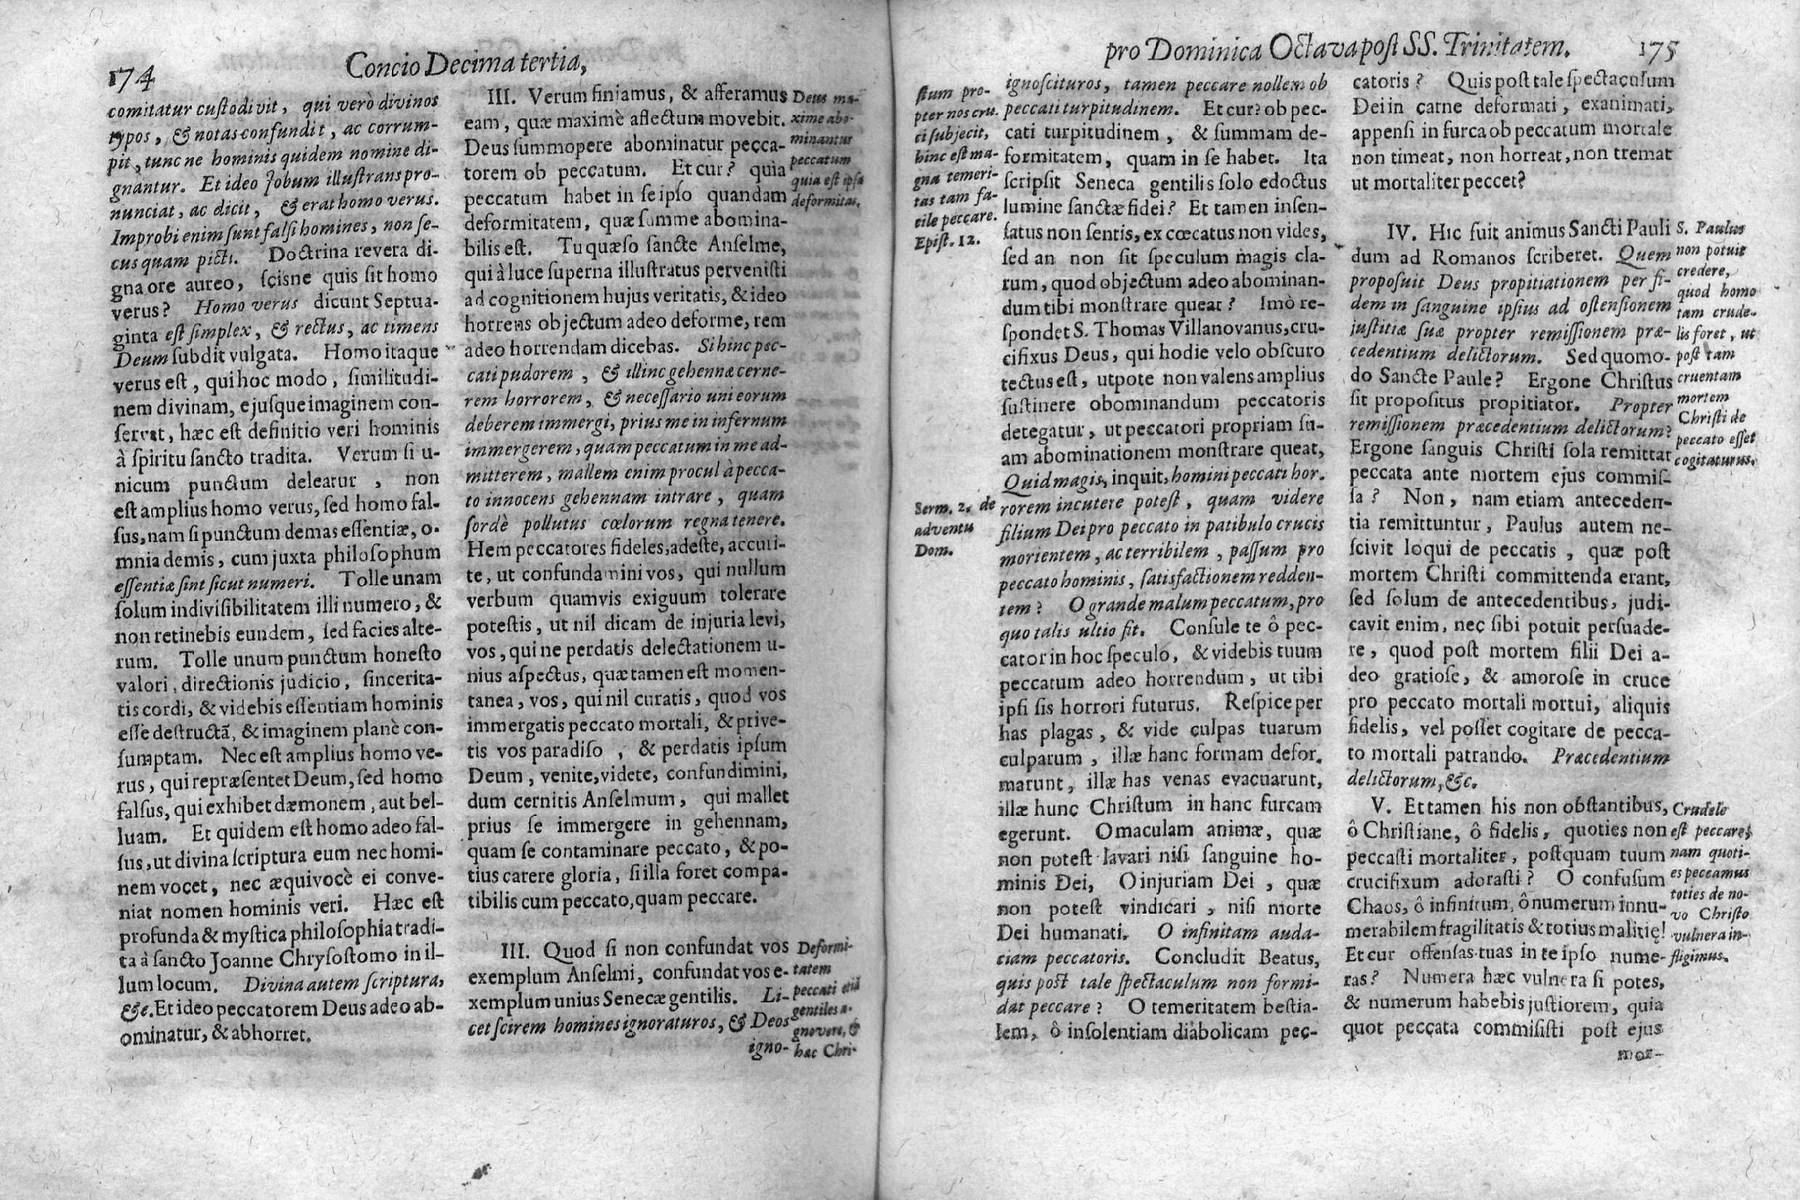 174
Concio Decima tertia,
comitatur custodivit, qui verò divinos
typos, & notas confundit, ac corrum-
pit, tunc ne hominis quidem nomine di-
gnantur. Et ideo Jobum illustrans pro-
nunciat, ac dicit, & erat homo verus.
Improbi enim sunt falsi homines, non se-
cus quam picti. Doctrina revera di-
gna ore aureo, scisne quis sit homo
verus? Homo verus dicunt Septua-
ginta est simplex, & rectus, ac timens
Deum subdit vulgata. Homo itaque
verus est, qui hoc modo, similitudi-
nem divinam, ejusque imaginem con-
servat, hæc est definitio veri hominis
à spiritu sancto tradita. Verum si u-
nicum punctum deleatur, non
est amplius homo verus, sed homo fal-
sus, nam si punctum demas essentiæ, o-
mnia demis, cum juxta philosophum
essentiæ sint sicut numeri. Tolle unam
solum indivisibilitatem illi numero, &
non retinebis eundem, sed facies alte-
rum. Tolle unum punctum honesto
valori, directionis judicio, sincerita-
tis cordi, & videbis essentiam hominis
esse destructã, & imaginem planè con-
sumptam. Nec est amplius homo ve-
rus, qui repræsentet Deum, sed homo
falsus, qui exhibet dæmonem, aut bel-
luam. Et quidem est homo adeo fal-
sus, ut divina scriptura eum nec homi-
nem vocet, nec æquivocè ei conve-
niat nomen hominis veri. Hæc est
profunda & mystica philosophia tradi-
ta à sancto Joanne Chrysostomo in il-
lum locum. Divina autem scriptura,
&c. Et ideo peccatorem Deus adeo ab-
ominatur, & abhorret.
III. Verum finiamus, & afferamus
eam, quæ maximè affectum movebit.
Deus summopere abominatur pecca-
torem ob peccatum. Et cur? quia
peccatum habet in se ipso quandam
deformitatem, quæ summe abomina-
bilis est. Tu quæso sancte Anselme,
qui à luce superna illustratus pervenisti
ad cognitionem hujus veritatis, & ideo
horrens objectum adeo deforme, rem
adeo horrendam dicebas. Si hinc pec-
cati pudorem, & illinc gehennæ cerne-
rem horrorem, & necessario uni eorum
deberem immergi, prius me in infernum
immergerem, quam peccatum in me ad-
mitterem, mallem enim procul à pecca-
to innocens gehennam intrare, quam
sordè pollutus cœlorum regna tenere.
Hem peccatores fideles, adeste, accurri-
te, ut confundamini vos, qui nullum
verbum quamvis exiguum tolerare
potestis, ut nil dicam de injuria levi,
vos, qui ne perdatis delectationem u-
nius aspectus, quæ tamen est momen-
tanea, vos, qui nil curatis, quod vos
immergatis peccato mortali, & prive-
tis vos paradiso, & perdatis ipsum
Deum, venite, videte, confundimini,
dum cernitis Anselmum, qui mallet
prius se immergere in gehennam,
quam se contaminare peccato, & po-
tius carere gloria, si illa foret compa-
tibilis cum peccato, quam peccare.
III. Quod si non confundat vos
exemplum Anselmi, confundat vos e-
xemplum unius Senecæ gentilis. Li-
cet scirem homines ignoraturos, & Deos
igno-
Deus ma-
xime abo-
minantur
peccatum
quia est ipsa
deformitas.
Deformi-
tatem
peccati etiã
gentiles a-
gnovere, &
hac Chri-
pro Dominica Octava post SS. Trinitatem.
175
stum pro-
pter nos cru-
ci subjecit,
hinc est ma-
gna temeri-
tas tam fa-
cile peccare.
Epist. 12.
Serm. 2. de
adventu
Dom.
ignoscituros, tamen peccare nollem ob
peccati turpitudinem. Et cur? ob pec-
cati turpitudinem, & summam de-
formitatem, quam in se habet. Ita
scripsit Seneca gentilis solo edoctus
lumine sanctæ fidei? Et tamen insen-
satus non sentis, excœcatus non vides,
sed an non sit speculum magis cla-
rum, quod objectum adeo abominan-
dum tibi monstrare queat? Imò re-
spondet S. Thomas Villanovanus, cru-
cifixus Deus, qui hodie velo obscuro
tectus est, utpote non valens amplius
sustinere obominandum peccatoris
detegatur, ut peccatori propriam su-
am abominationem monstrare queat,
Quid magis, inquit, homini peccati hor-
rorem incutere potest, quam videre
filium Dei pro peccato in patibulo crucis
morientem, ac terribilem, passum pro
peccato hominis, satisfactionem redden-
tem? O grande malum peccatum, pro
quo talis ultio fit. Consule te ô pec-
cator in hoc speculo, & videbis tuum
peccatum adeo horrendum, ut tibi
ipsi sis horrori futurus. Respice per
has plagas, & vide culpas tuarum
culparum, illæ hanc formam defor-
marunt, illæ has venas evacuarunt,
illæ hunc Christum in hanc furcam
egerunt. O maculam animæ, quæ
non potest lavari nisi sanguine ho-
minis Dei, O injuriam Dei, quæ
non potest vindicari, nisi morte
Dei humanati. O infinitam auda-
ciam peccatoris. Concludit Beatus,
quis post tale spectaculum non formi-
dat peccare? O temeritatem bestia-
lem, ô insolentiam diabolicam pec-
catoris? Quis post tale spectaculum
Dei in carne deformati, exanimati,
appensi in furca ob peccatum mortale
non timeat, non horreat, non tremat
ut mortaliter peccet?
IV. Hic fuit animus Sancti Pauli
dum ad Romanos scriberet. Quem
proposuit Deus propitiationem per fi-
dem in sanguine ipsius ad ostensionem
justitiæ suæ propter remissionem præ-
cedentium delictorum. Sed quomo-
do Sancte Paule? Ergone Christus
sit propositus propitiator. Propter
remissionem præcedentium delictorum?
Ergone sanguis Christi sola remittat
peccata ante mortem ejus commis-
sa? Non, nam etiam anteceden-
tia remittuntur, Paulus autem ne-
scivit loqui de peccatis, quæ post
mortem Christi committenda erant,
sed solum de antecedentibus, judi-
cavit enim, nec sibi potuit persuade-
re, quod post mortem filii Dei a-
deo gratiose, & amorose in cruce
pro peccato mortali mortui, aliquis
fidelis, vel posset cogitare de pecca-
to mortali patrando. Præcedentium
delictorum, &c.
V. Et tamen his non obstantibus,
ô Christiane, ô fidelis, quoties non
peccasti mortaliter, postquam tuum
crucifixum adorasti? O confusum
Chaos, ô infinitum, ô numerum innu-
merabilem fragilitatis & totius malitię!
Et cur offensas tuas in te ipso nume-
ras? Numera hæc vulnera si potes,
& numerum habebis justiorem, quia
quot peccata commisisti post ejus
mor-
S. Paulus
non potuit
credere,
quod homo
tam crude-
lis foret, ut
post tam
cruentam
mortem
Christi de
peccato esset
cogitaturus.
Crudele
est peccare,
nam quoti-
es peccamus
toties de no-
vo Christo
vulnera in-
fligimus.